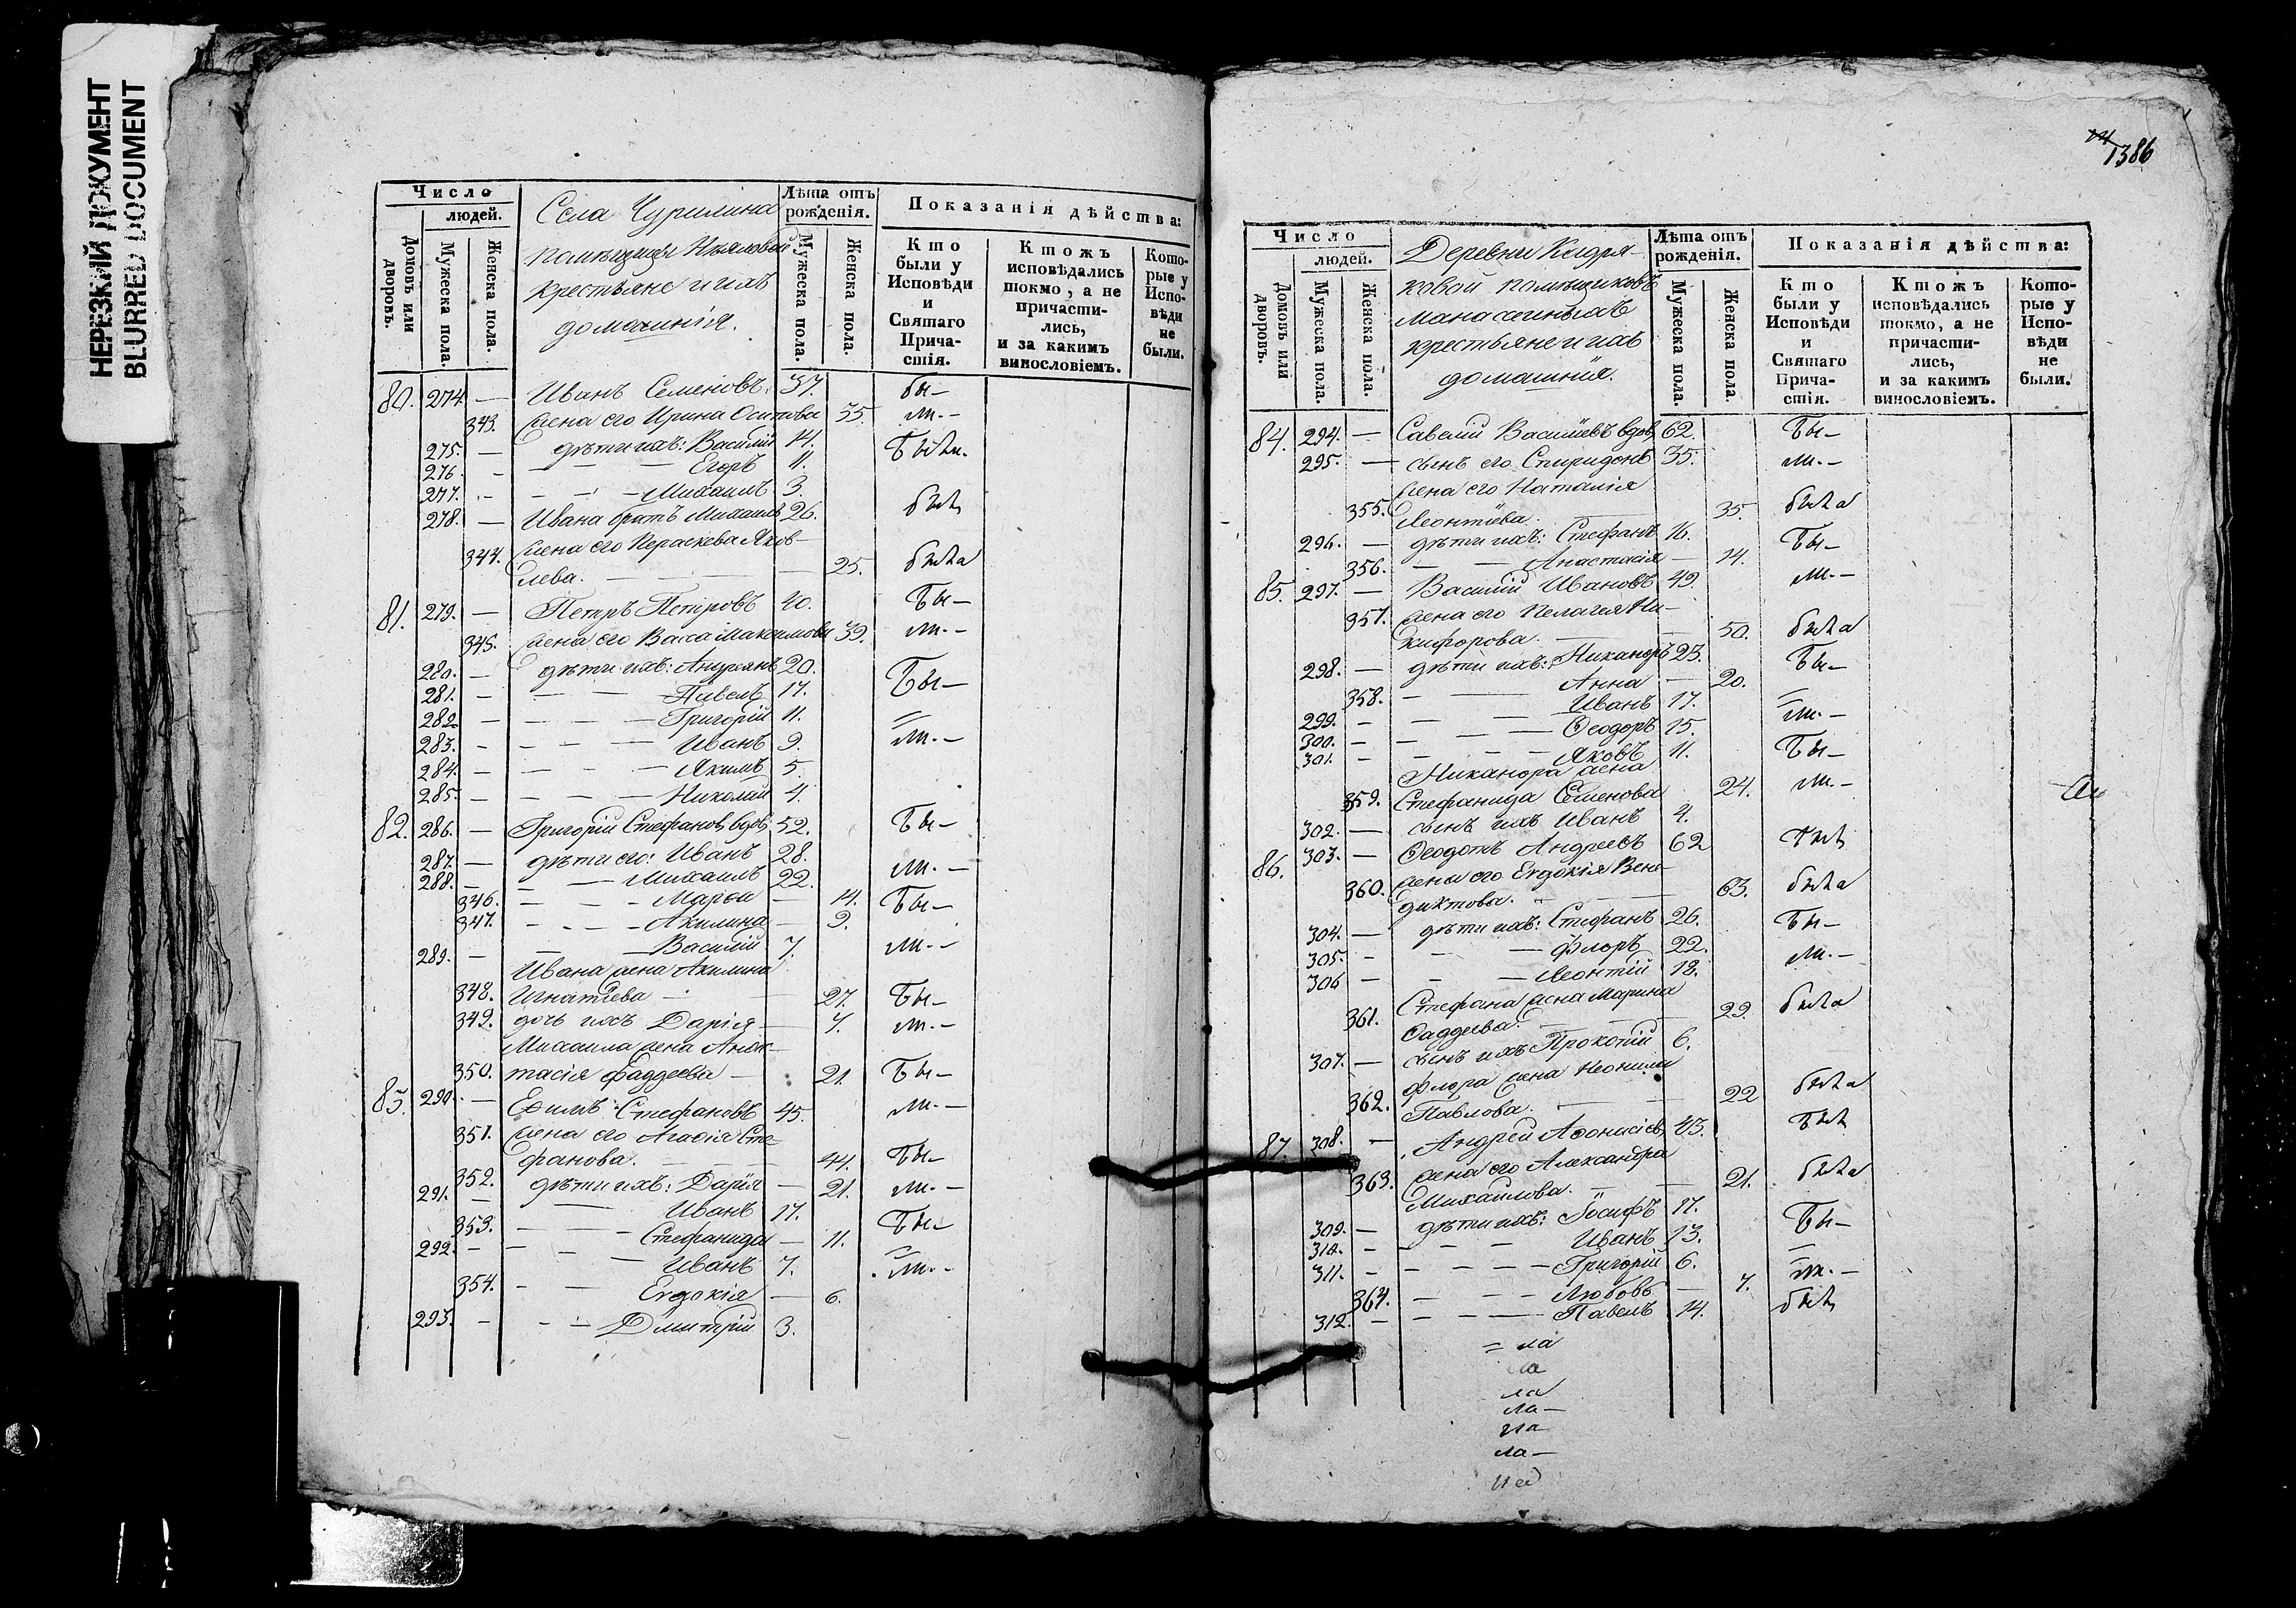 НЕРЕЗКИЙ ДОКУМЕНТ
BLURRED DOCUMENT
Число
людей.
Домовъ или дворовъ.
Мужеска пола.
Женска пола.
Села Чурилина
помѣщицы
крестьяне и ихъ
домашнія.
Лѣта отъ рожденія.
Мужеска пола.
Женска пола.
Показанія дѣйства:
Кто были у Исповѣди и Святаго Прича-стія.
Ктожъ исповѣдались токмо, а не причасти-лись, и за какимъ винословіемъ.
Кото-рые у Испо-вѣди не были.
80. 274. — Иванъ Семеновъ. 37. бы—
343. жена его Ирина Осипова 35. ли.—
275. — дѣти ихъ: Василій 14. Были.
276. — — — Егоръ 11.
277. — — — Михаилъ 3.
278. — Ивана братъ Михаилъ 26. былъ
344. жена его Параскева Яков-
лева. — — 25. была
81. 279. — Петръ Петровъ 40. Бы—
345. жена его Васса Максимова 39. ли.—
280. — дѣти ихъ: Андреянъ 20.
281. — — — Павелъ 17. Бы—
282. — — — Григорій 11. =
283. — — — Иванъ 9. ли.—
284. — — — Якимъ 5.
285. — — — Николай 4.
82. 286. — Григорій Стефановъ вдовъ 52. Бы—
287. — дѣти его: Иванъ 28.
288. — — — Михаилъ 22. ли.—
346. — — Марѳа — 14. Бы—
347. — — Акилина — 9.
289. — — — Василій 7. ли.—
Ивана жена Акилина
348. Игнатіева — — 27. Бы—
349. дочь ихъ Дарія — 4. ли.—
Михаила жена Анас-
350. тасія Фаддеева — 21. Бы—
83. 290. — Ефимъ Стефановъ 45. ли.—
351. жена его Агафія Сте-
фанова. — — 44. Бы—
352. дѣти ихъ: Дарія — 21. ли.—
291. — — Иванъ 17.
353. — — Стефанида — 11. Бы—
292. — — — Иванъ 7. = ли.—
354. — — Евдокія — 6.
293. — — — Дмитрій 3.
1386
Число
людей.
Домовъ или дворовъ.
Мужеска пола.
Женска пола.
Деревни Кудря-
ковой помѣщиковъ
крестьяне и ихъ
домашнія.
Лѣта отъ рожденія.
Мужеска пола.
Женска пола.
Показанія дѣйства:
Кто были у Исповѣди и Святаго Прича-стія.
Ктожъ исповѣдались токмо, а не причасти-лись, и за какимъ винословіемъ.
Кото-рые у Испо-вѣди не были.
84. 294. — Савелій Василіевъ вдовъ 62. Бы—
295. — сынъ его Спиридонъ 35. ли.—
жена его Наталія
355. Леонтіева. — 35. была
296. — дѣти ихъ: Стефанъ 16. Бы—
356. — — Анастасія — 14.
85. 297. — Василій Ивановъ 49. ли.—
357. жена его Пелагея Ни-
кифорова. — — 50. была
298. — дѣти ихъ: Никаноръ 23. Бы—
358. — — Анна — 20.
299. — — — Иванъ 17. =
300. — — — Ѳеодоръ 15. ли.—
301. — — — Яковъ 11. Бы—
Никанора жена
359. Стефанида Семенова 24. ли.—
302. — сынъ ихъ Иванъ 4.
86. 303. — Ѳеодотъ Андреевъ 62 былъ
360. жена его Евдокія Вене-
диктова. — — 63. была
304. — дѣти ихъ: Стефанъ 26. Бы—
305. — — — Флоръ 22.
306 — — — Леонтій 18. ли.—
Стефана жена Марина
361. Фаддеева. — — 29. была
307. — сынъ ихъ Прокопій 6.
Флора жена Неонила
362. Павлова. — — 22 была
87. 308. — Андрей Афонасіевъ 43. былъ
363. жена его Александра
Михайлова. — — 21. была
309. — дѣти ихъ: Іосифъ 17.
310. — — — Иванъ 13. Бы—
311. — — — Григорій 6. =
364. — — Любовь — 7. ли.—
312. — — — Павелъ 14. былъ
= ла
ла
ла
ла—
ла
ла—